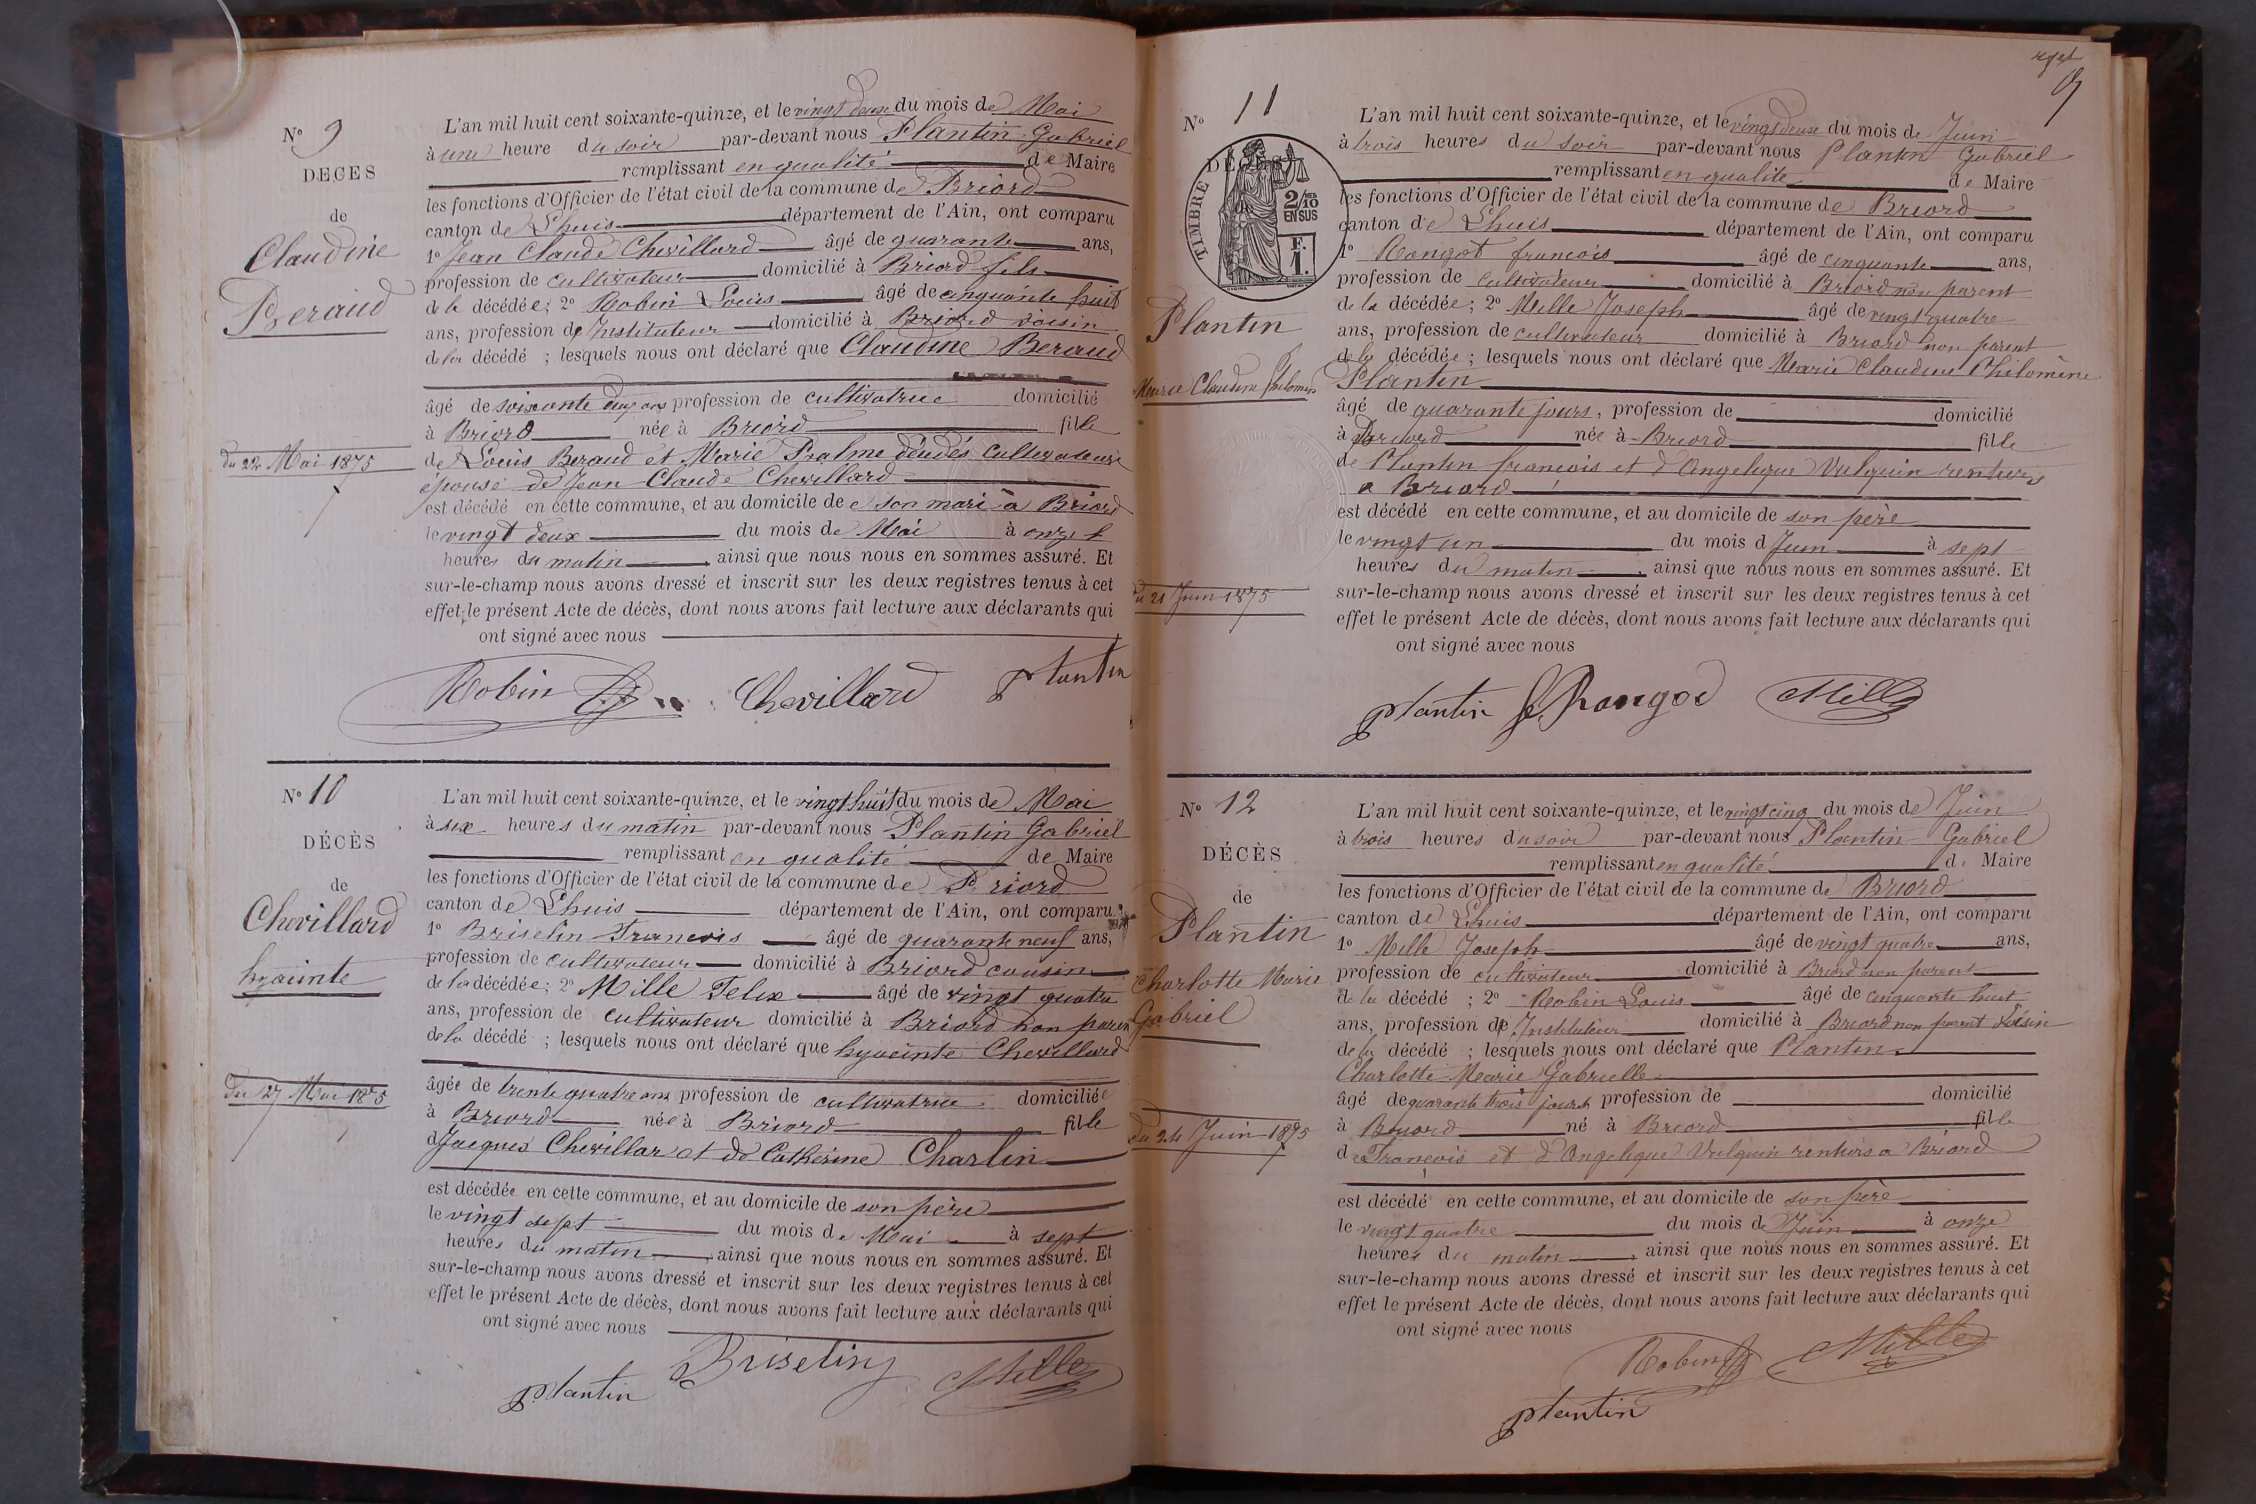 N° 9
DECES
de
Claudine
Beraud
du 22 Mai 1875
L'an mil huit cent soixante-quinze, et le vingt deux du mois de Mai
à une heure du soir par-devant nous Plantin Gabriel
remplissant en qualité de Maire
les fonctions d'Officier de l'état civil de la commune de Briord
canton de Lhuis département de l'Ain, ont comparu
1° Jean Claude Chevillard âgé de quarante ans,
profession de cultivateur domicilié à Briord fils
de la décédée; 2° Robin Louis âgé de cinquante huit
ans, profession de Instituteur domicilié à Briord voisin
de la décédé ; lesquels nous ont déclaré que Claudine Beraud
âgé de soixante ans profession de cultivatrice domicilié
à Briord née à Briord fille
de Louis Beraud et Marie Pralme cultivateurs
épouse de Jean Claude Chevillard
est décédé en cette commune, et au domicile de e son mari à Briord
le vingt deux du mois de Mai à onze
heures du matin, ainsi que nous nous en sommes assuré. Et
sur-le-champ nous avons dressé et inscrit sur les deux registres tenus à cet
effet le présent Acte de décès, dont nous avons fait lecture aux déclarants qui
ont signé avec nous
Robin Chevillard plantin
N° 10
DÉCÈS
de
Chevillard
hyacinte
du 27 Mai 1875
L'an mil huit cent soixante-quinze, et le vingt huit du mois de Mai
à six heures du matin par-devant nous Plantin Gabriel
remplissant en qualité de Maire
les fonctions d'Officier de l'état civil de la commune de Briord
canton de Lhuis département de l'Ain, ont comparu
1° Briselin Francois âgé de quarante neuf ans,
profession de cultivateur domicilié à Briord cousin
de la décédée; 2° Mille Felix âgé de vingt quatre
ans, profession de cultivateur domicilié à Briord non parent
de la décédé ; lesquels nous ont déclaré que hyacinte Chevillard
âgée de trente quatre ans profession de cultivatrice domiciliée
à Briord née à Briord fille
d Jacques Chevillar et de Cathérine Charlin
est décédée en cette commune, et au domicile de son père
le vingt sept du mois de Mai à sept
heures du matin, ainsi que nous nous en sommes assuré. Et
sur-le-champ nous avons dressé et inscrit sur les deux registres tenus à cet
effet le présent Acte de décès, dont nous avons fait lecture aux déclarants qui
ont signé avec nous
Briselin
plantin Mille
N° 11
DÉ
TIMBRE
2/10
EN SUS
F.
1.
Plantin
Marie Claudine Philomene
du 21 Juin 1875
L'an mil huit cent soixante-quinze, et le vingt deux du mois de Juin
à trois heures du soir par-devant nous Plantin Gabriel
remplissant en qualité de Maire
les fonctions d'Officier de l'état civil de la commune de Briord
canton de Lhuis département de l'Ain, ont comparu
1° Rongot francois âgé de cinquante ans,
profession de cultivateur domicilié à Briord non parent
de la décédée ; 2° Mille Joseph âgé de vingt quatre
ans, profession de cultivateur domicilié à Briord non parent
de la décédée ; lesquels nous ont déclaré que Marie Claudine Philomène
Plantin
âgé de quarante jours, profession de domicilié
à Briord née à Briord fille
de Plantin francois et d'Angelique Vulquin rentiers
a Briord
est décédé en cette commune, et au domicile de son père
le vingt un du mois d Juin à sept
heures du matin, ainsi que nous nous en sommes assuré. Et
sur-le-champ nous avons dressé et inscrit sur les deux registres tenus à cet
effet le présent Acte de décès, dont nous avons fait lecture aux déclarants qui
ont signé avec nous
plantin Rongod Mille
N° 12
DÉCÈS
de
Plantin
Charlotte Marie
Gabriel
du 24 Juin 1875
L'an mil huit cent soixante-quinze, et le vingt cinq du mois de Juin
à trois heures du soir par-devant nous Plantin Gabriel
remplissant en qualité de Maire
les fonctions d'Officier de l'état civil de la commune de Briord
canton de Lhuis département de l'Ain, ont comparu
1° Mille Joseph âgé de vingt quatre ans,
profession de cultivateur domicilié à Briord non parent
de la décédé ; 2° Robin Louis âgé de cinquante huit
ans, profession de Instituteur domicilié à Briord non parent voisin
de la décédé ; lesquels nous ont déclaré que Plantin
Charlotte Marie Gabrielle
âgé de quarante trois jours profession de domicilié
à Briord né à Briord fille
de Francois et d'Angelique Vulquin rentiers a Briord
est décédé en cette commune, et au domicile de son père
le vingt quatre du mois de Juin à onze
heures du matin, ainsi que nous nous en sommes assuré. Et
sur-le-champ nous avons dressé et inscrit sur les deux registres tenus à cet
effet le présent Acte de décès, dont nous avons fait lecture aux déclarants qui
ont signé avec nous
Robin Mille
plantin